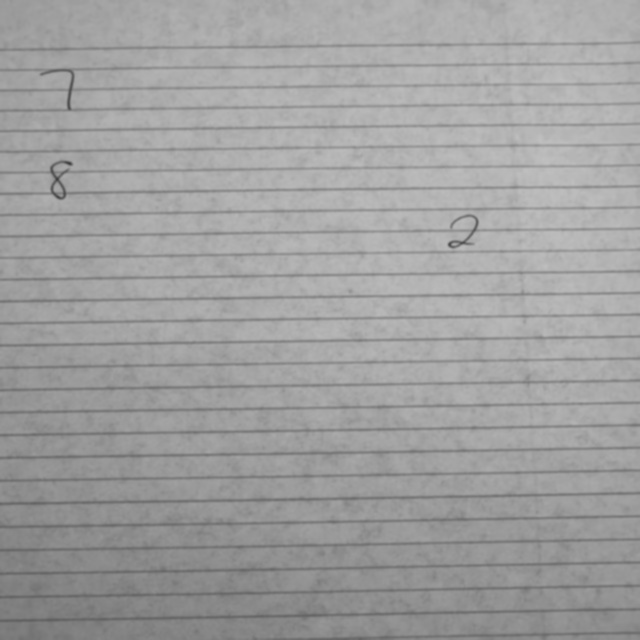 7
8
2